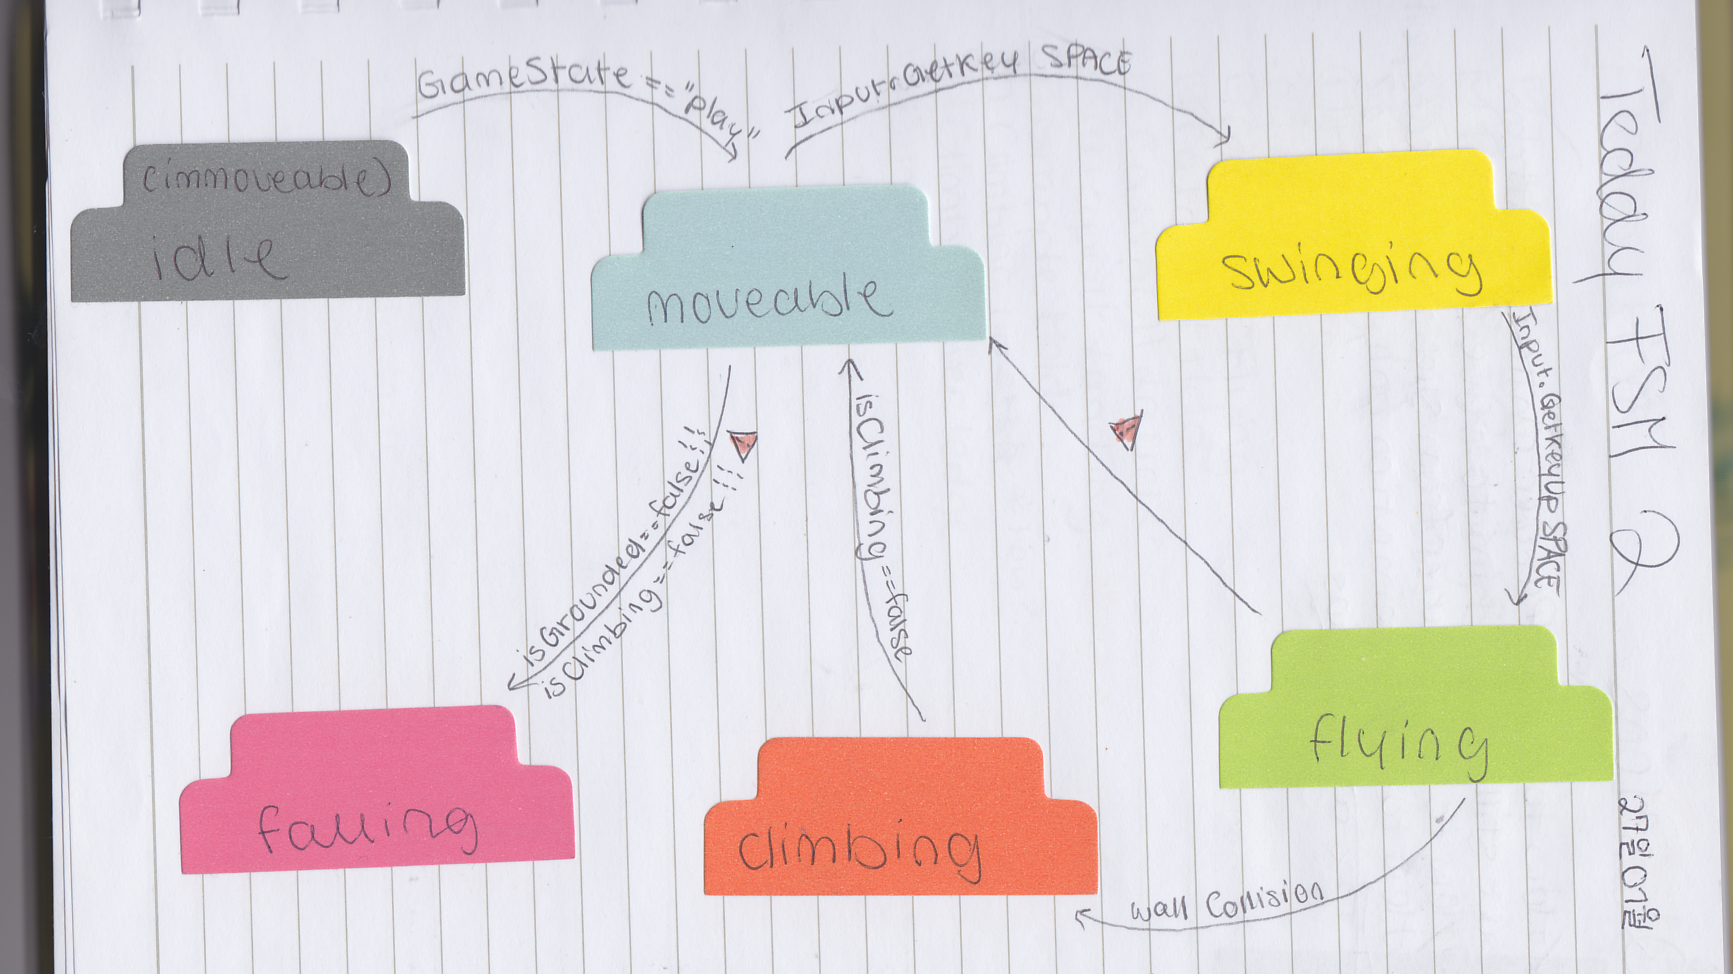 GameState == "play"
Input.GetKey SPACE
(immoveable)
idle
moveable
swinging
Teddy FSM 2
Input.GetKeyUp SPACE
isGrounded==false!!
isClimbing==false!!!
isClimbing==false
falling
climbing
flying
wall Collision
27일07월